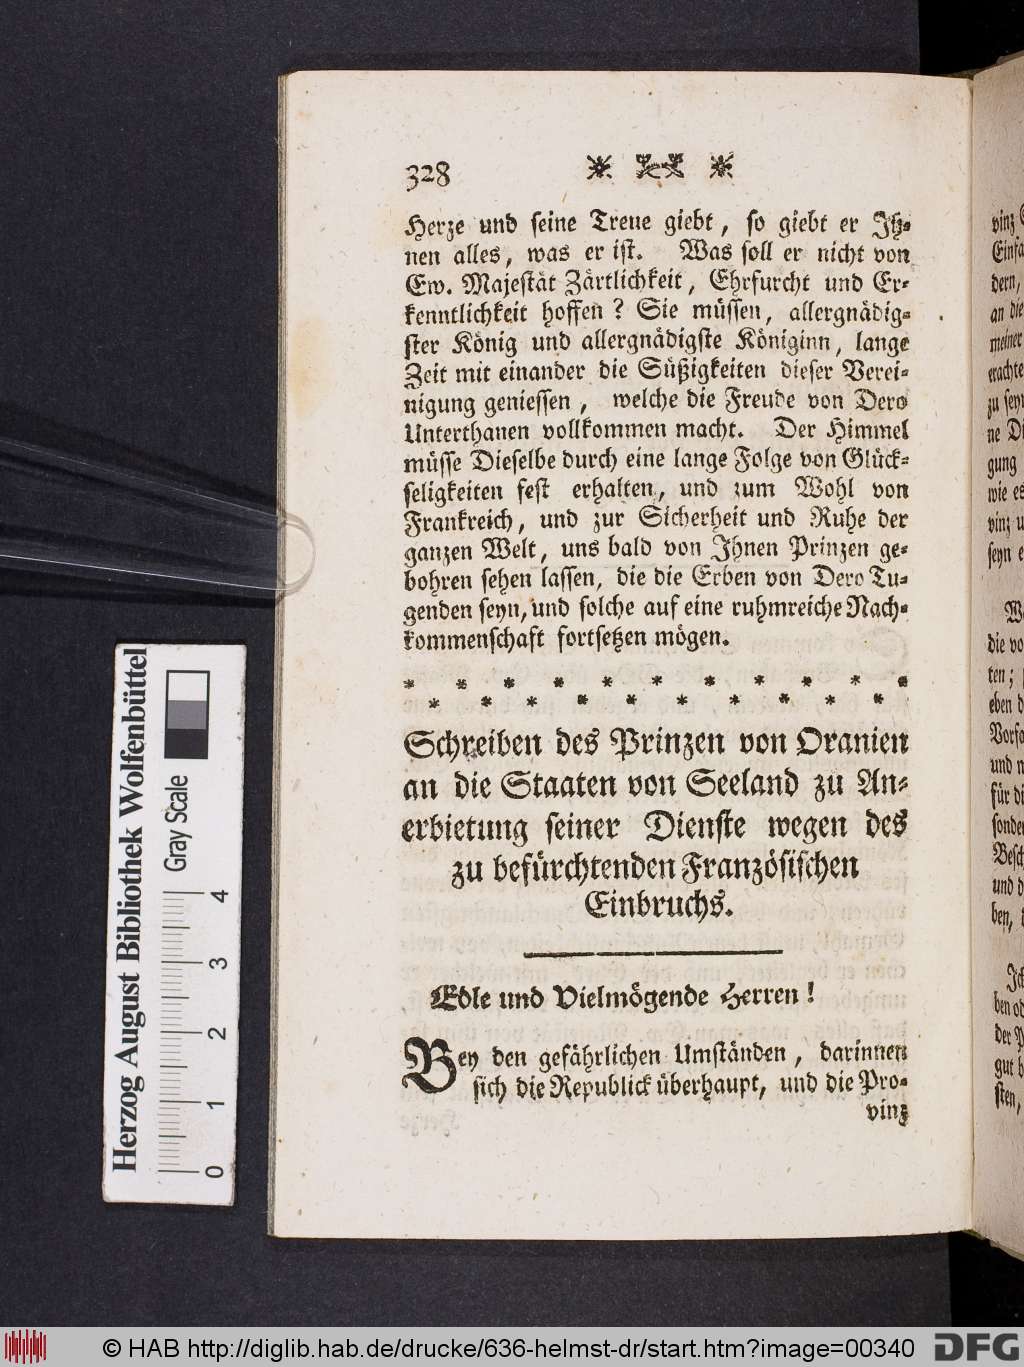 328
Herze und seine Treue giebt, so giebt er Ih-
nen alles, was er ist. Was soll er nicht von
Ew. Majestät Zärtlichkeit, Ehrfurcht und Er-
kenntlichkeit hoffen? Sie müssen, allergnädig-
ster König und allergnädigste Königinn, lange
Zeit mit einander die Süßigkeiten dieser Verei-
nigung geniessen, welche die Freude von Dero
Unterthanen vollkommen macht. Der Himmel
müsse Dieselbe durch eine lange Folge von Glück-
seligkeiten fest erhalten, und zum Wohl von
Frankreich, und zur Sicherheit und Ruhe der
ganzen Welt, uns bald von Ihnen Prinzen ge-
bohren sehen lassen, die die Erben von Dero Tu-
genden seyn, und solche auf eine ruhmreiche Nach-
kommenschaft fortsetzen mögen.
* * * * * * * * * * *
* * * * * * * * * *
Schreiben des Prinzen von Oranien
an die Staaten von Seeland zu An-
erbietung seiner Dienste wegen des
zu befürchtenden Französischen
Einbruchs.
Edle und Vielmögende Herren!
Bey den gefährlichen Umständen, darinnen
sich die Republick überhaupt, und die Pro-
vinz
vinz
Einfa
dern,
an die
meiner
erachte
zu seyn
ne Di
gung
wie es
vinz u
seyn e
die vo
ten;
eben d
Vorfa
und n
für di
sonder
Besch
und d
ben,
Ich
ben od
der P
gut b
sten,
Herzog August Bibliothek Wolfenbüttel
Gray Scale
0 1 2 3 4
© HAB http://diglib.hab.de/drucke/636-helmst-dr/start.htm?image=00340
DFG